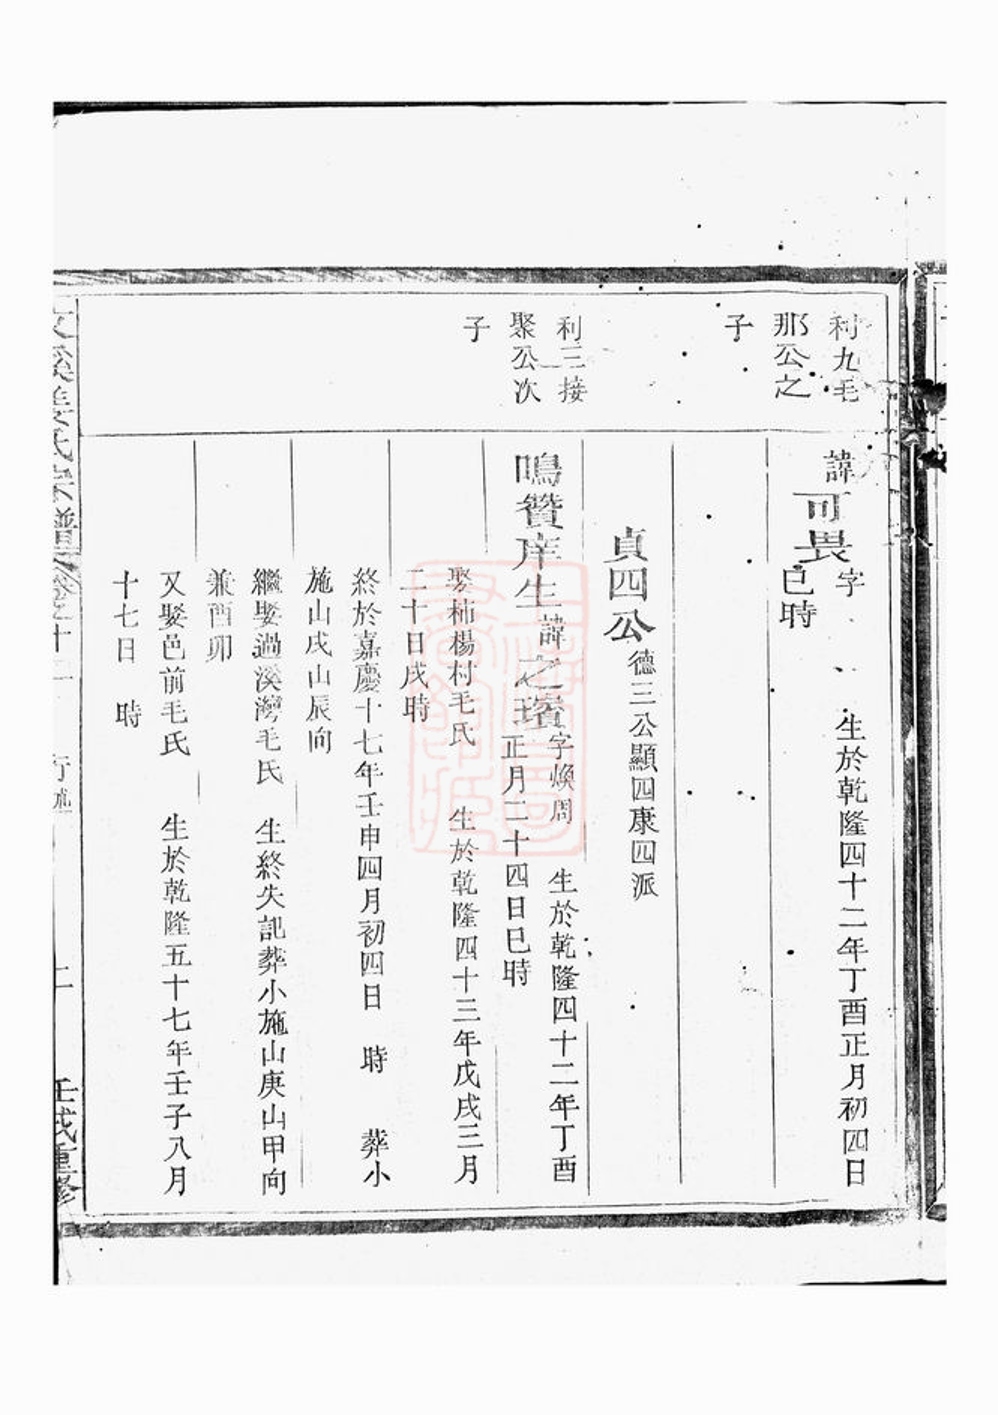 利九毛
那公之
子
諱可畏字 生於乾隆四十二年丁酉正月初四日
巳時
貞四公德三公顯四康四派
利三接
聚公次
子
鳴贊庠生諱之璸字煥周 生於乾隆四十二年丁酉
正月二十四日巳時
娶柿楊村毛氏 生於乾隆四十三年戊戌三月
二十日戌時
終於嘉慶十七年壬申四月初四日 時 葬小
施山戌山辰向
繼娶過溪灣毛氏 生終失記葬小施山庚山甲向
兼酉卯
又娶邑前毛氏 生於乾隆五十七年壬子八月
十七日 時
文溪姜氏宗譜 卷之十二 行述 二 壬戌重修